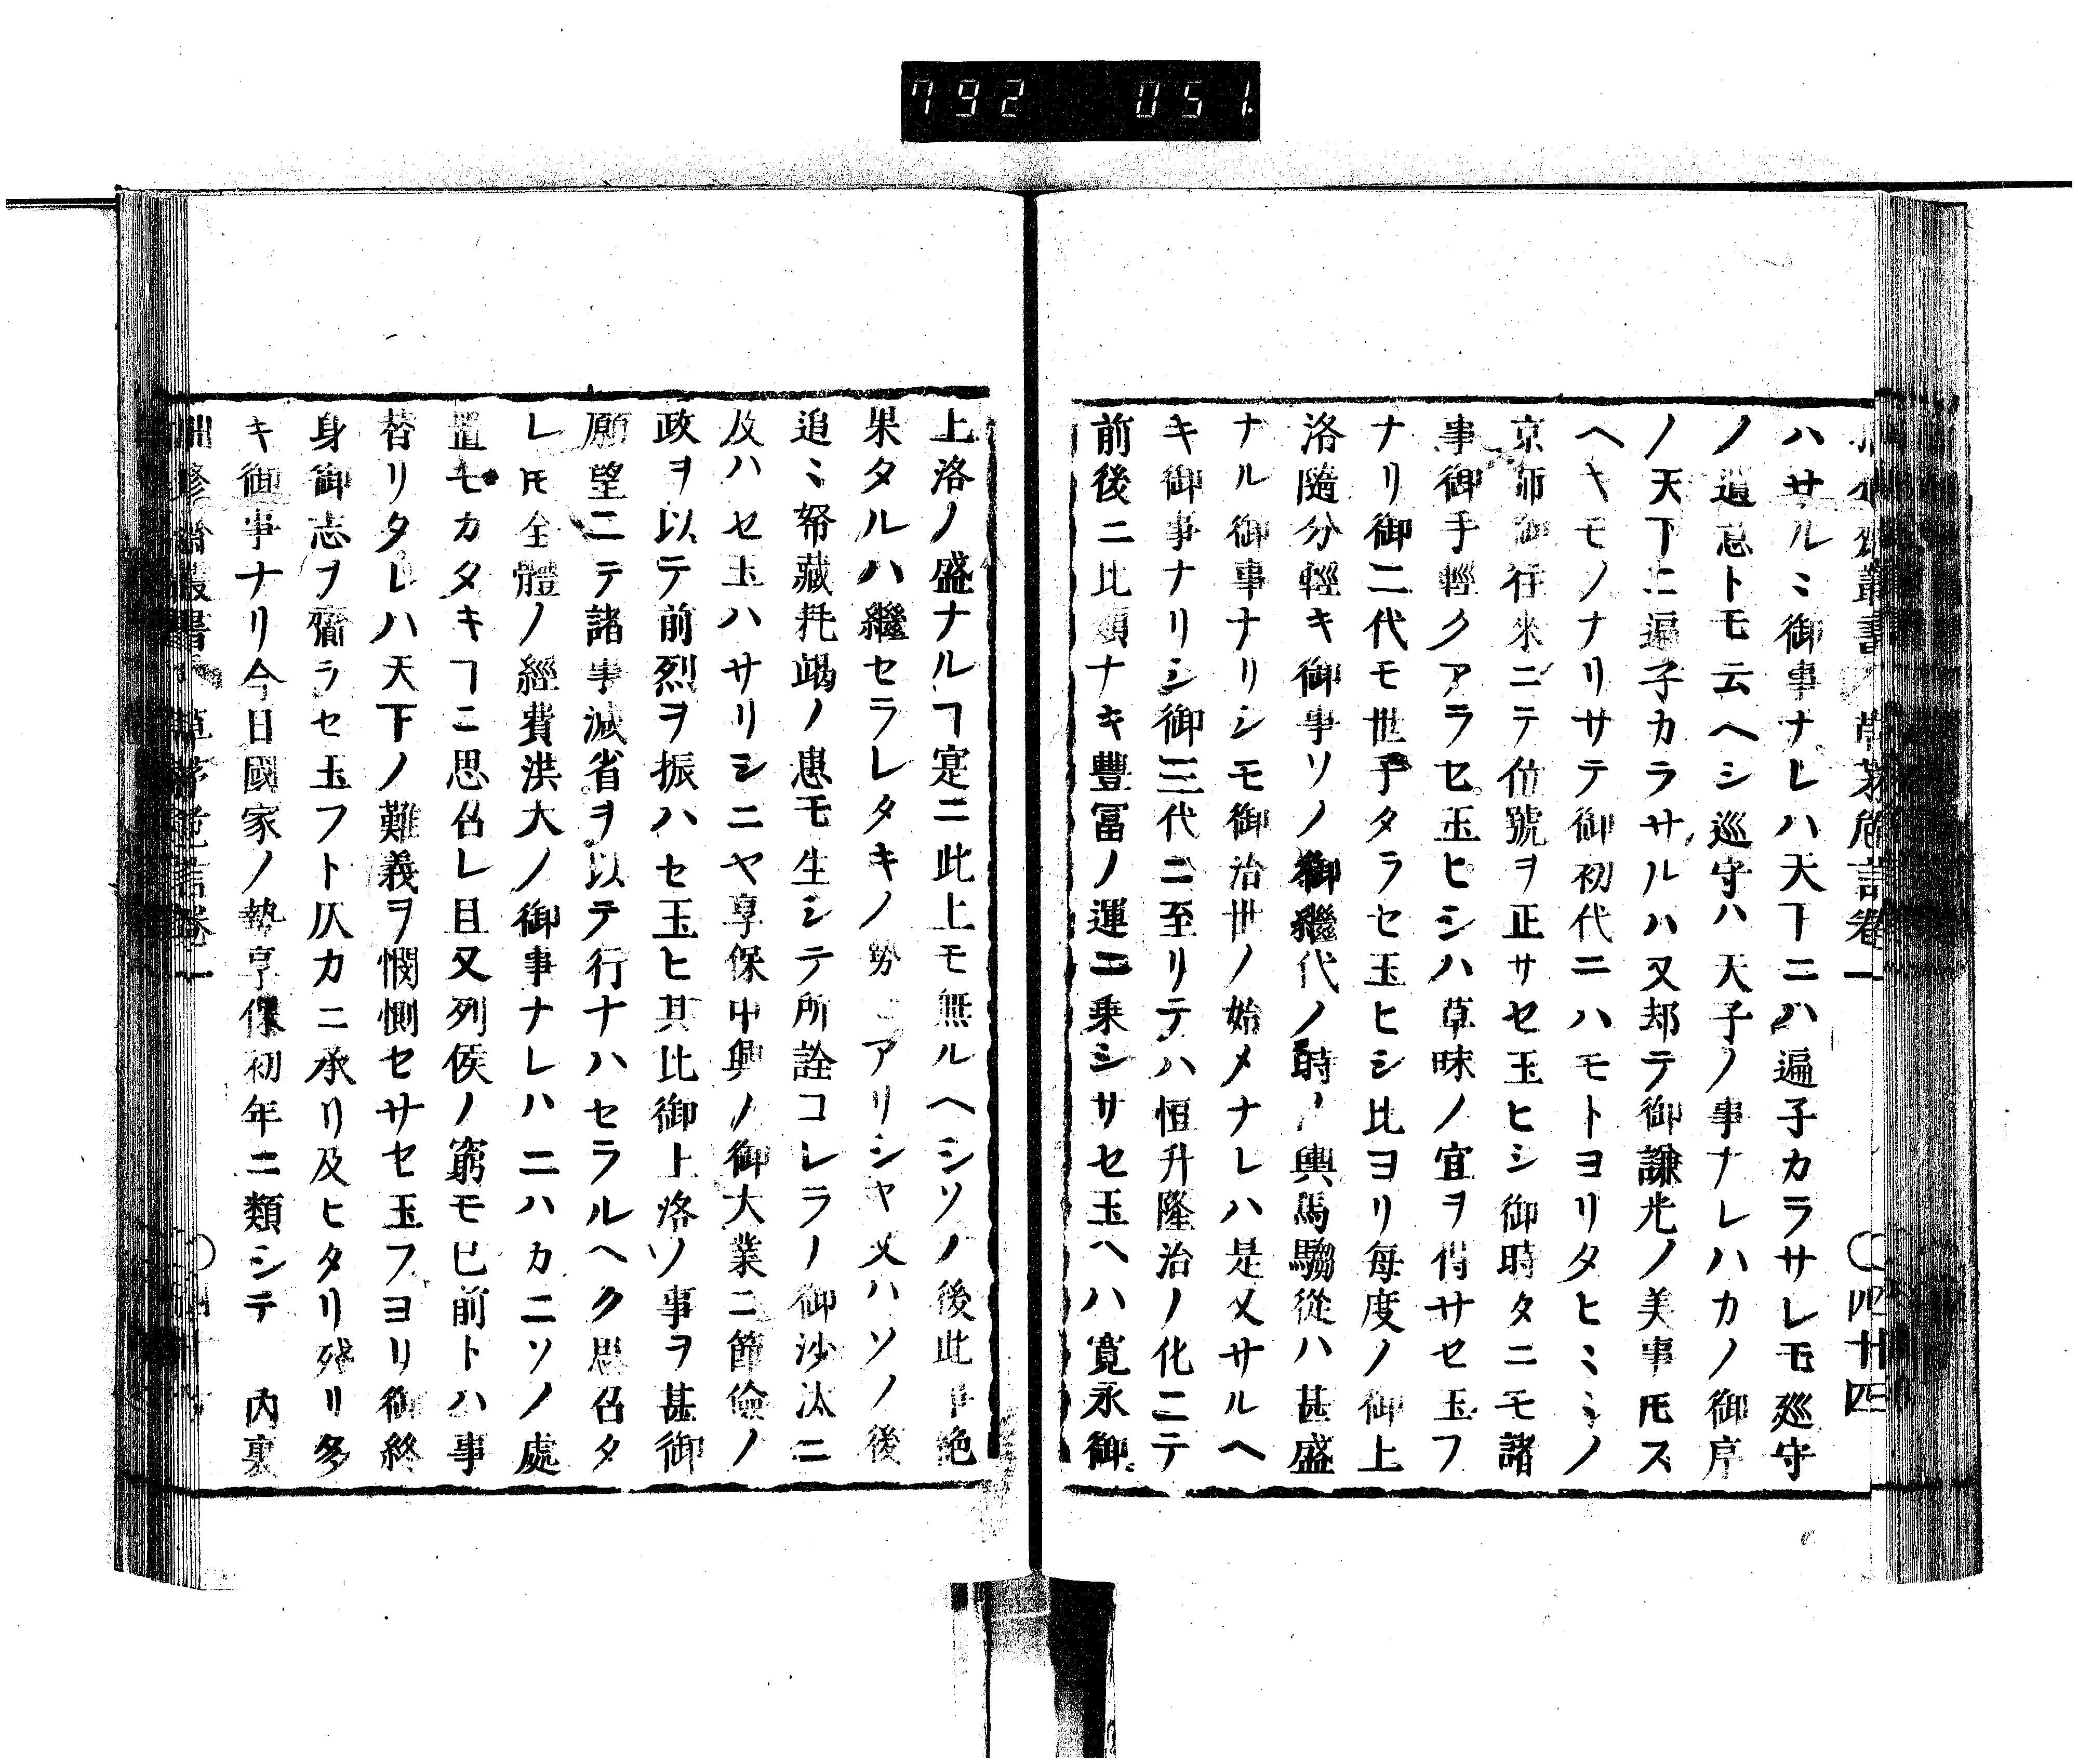 792 051
ハサルミ御事ナレハ天下ニハ遍子カラサレモ巡守
ノ遺意トモ云ヘシ巡守ハ天子ノ事ナレハカノ御序
ノ天下ニ遍子カラサルハ又却テ御謙光ノ美事𪜈ス
ヘキモノナリサテ御初代ニハモトヨリタヒミミノ
京師御往来ニテ位號ヲ正サセ玉ヒシ御時タニモ諸
事御手輕クアラセ玉ヒシハ草昧ノ宜ヲ得サセ玉フ
ナリ御二代モ世子タラセ玉ヒシ比ヨリ毎度ノ御上
洛隨分輕キ御事ソノ御繼代ノ時ノ輿馬騶從ハ甚盛
ナル御事ナリシモ御治世ノ始メナレハ是又サルヘ
キ御事ナリシ御三代ニ至リテハ恒升隆治ノ化ニテ
前後ニ比類ナキ豐冨ノ運ニ乗シサセ玉ヘハ寛永御
上洛ノ盛ナルヿ寔ニ此上モ無ルヘシソノ後此事絶
果タルハ繼セラレタキノ勢ニアリシヤ又ハソノ後
追ミ帑藏耗竭ノ患モ生シテ所詮コレラノ御沙汰ニ
及ハセ玉ハサリシニヤ享保中興ノ御大業ニ節儉ノ
政ヲ以テ前烈ヲ振ハセ玉ヒ其比御上洛ソ事ヲ甚御
願望ニテ諸事減省ヲ以テ行ナハセラルヘク思召タ
レ𪜈全體ノ經費洪大ノ御事ナレハニハカニソノ處
置モカタキヿニ思召レ且又列侯ノ窮モ已前トハ事
替リタレハ天下ノ難義ヲ憫惻セサセ玉フヨリ御終
身御志ヲ齎ラセ玉フト仄カニ承リ及ヒタリ残リ多
キ御事ナリ今日國家ノ勢享保初年ニ類シテ　内裏